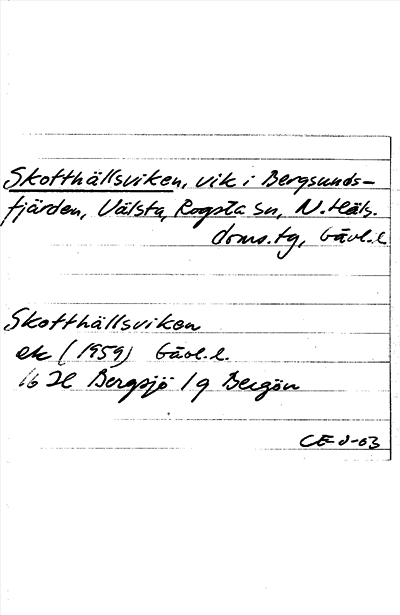 Skotthällsviken, vik i Bergsunds-
fjärden, Välsta, Rogsta sn, N. Häls.
doms.tg, Gävl.l.
Skotthällsviken
ek (1959) Gävl.l.
16 H Bergsjö 1 g Bergön
CE 8-63